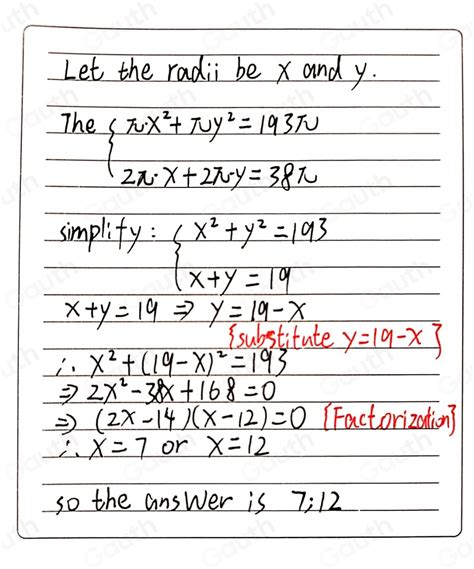 Let the radii be x and y.
The { πx²+πy²=193π
2π·x+2π·y=38π
simplify: { x²+y²=193
x+y=19
x+y=19 ⇒ y=19-x
{substitute y=19-x}
∴ x²+(19-x)²=193
⇒ 2x²-38x+168=0
⇒ (2x-14)(x-12)=0 {Factorization}
∴ x=7 or x=12
so the answer is 7;12